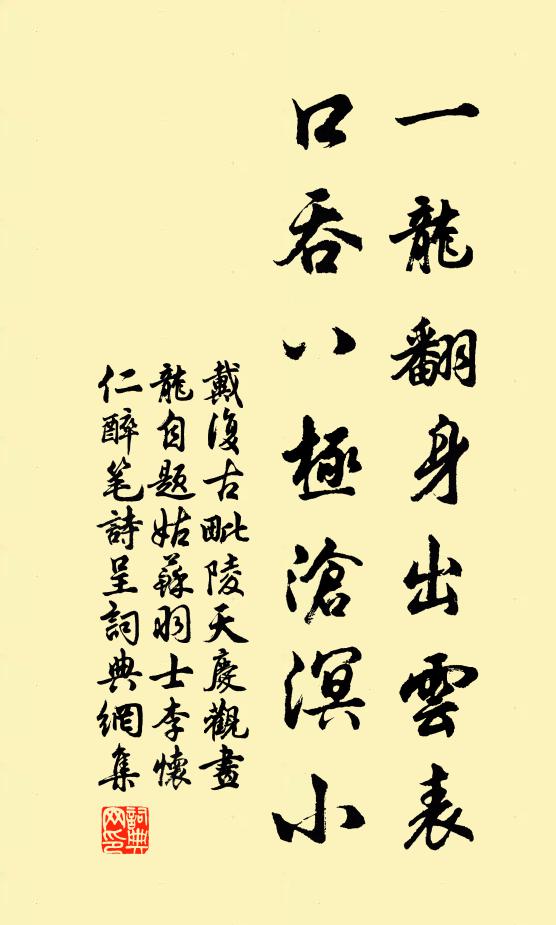 一龍翻身出雲表
口吞八極滄溟小
戴復古毗陵天慶觀畫
龍自題姑蘇羽士李懷
仁醉筆詩呈詞典網集
詞典网印